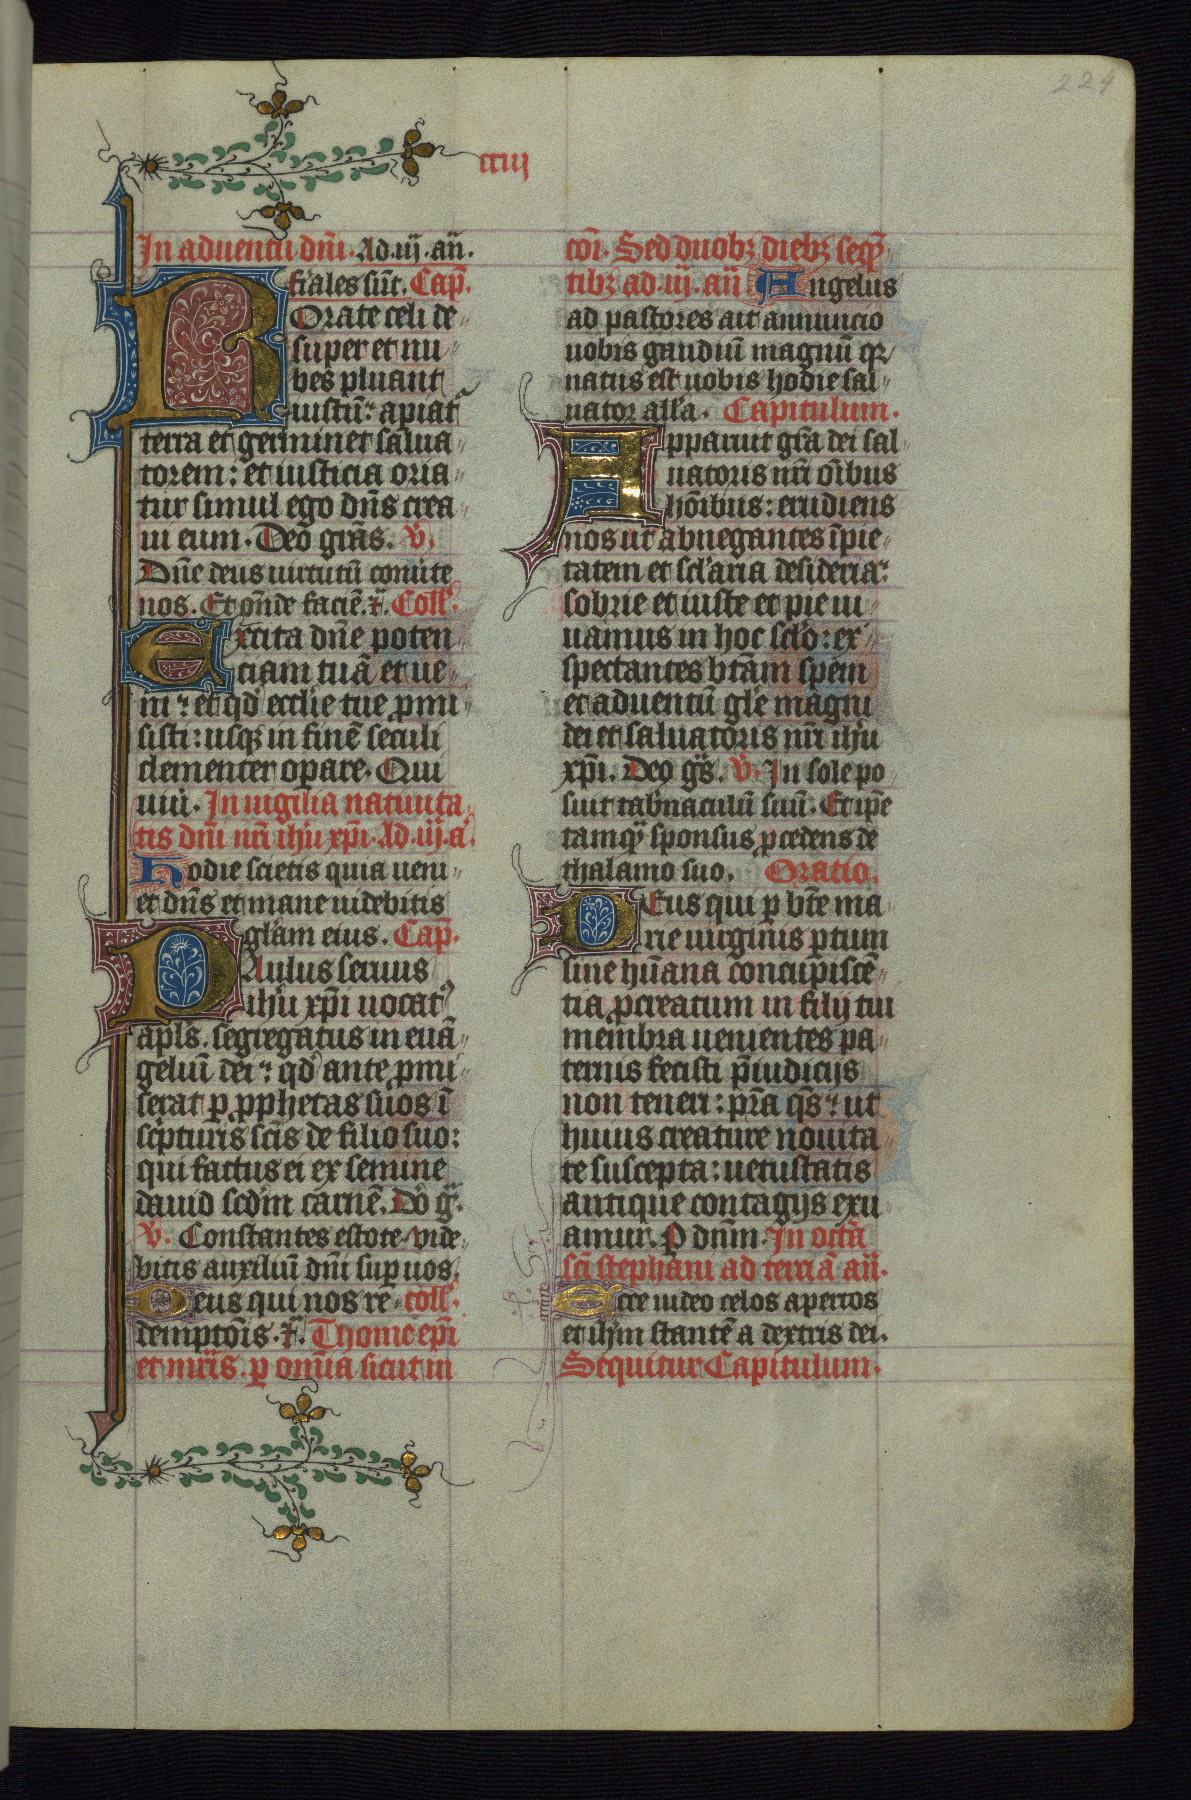 224
cciij
In aduentu dn̄i. Ad .iij. an̄.
fr̄iales sūt. Cap̄.
Rorate celi de„
super et nu„
bes pluant
iustū: apiat̄
terra et germinet salua„
torem: et iusticia oria„
tur simul ego dn̄s crea
ui eum. Deo gr̄as. v̄.
Dn̄e deus uirtutū conūte
nos. Et on̄de faciē. r̄. Coll'.
Excita dn̄e poten„
ciam tuā et ue„
ni: et qd̄ eccl'ie tue ꝓmi„
sisti: usqꝫ in finē seculi
clementer opare. Qui
uiui. In uigilia natiuita„
tis dn̄i nr̄i ih'u xp̄i. Ad .iij. ā.
Hodie scietis quia ueni„
et dn̄s et mane uidebitis
gl'am eius. Cap̄.
Paulus seruus
ih'u xp̄i uocatꝰ
apl's. segregatus in euā„
geliū dei: qd̄ ante ꝓmi„
serat ꝑ ꝓphetas suos ī
sc̄pturis sc̄is de filio suo:
qui factus ei ex semine
dauid scd̄m carnē. Dō gr̄.
v̄. Constantes estote. vide„
bitis auxiliū dn̄i sup uos.
Deus qui nos re„ coll'.
demptōis. r̄. Thome ep̄i
et mr̄is. ꝑ omīa sicut in
cōi. Sed duobꝫ diebꝫ seq̄„
tibꝫ ad .iij. an̄. Angelus
ad pastores ait annuncio
uobis gaudiū magnū qr̄
natus est uobis hodie sal„
uator all'a. Capitulum.
Apparuit gr̄a dei sal„
uatoris nr̄i oībus
hōibus: erudiens
nos ut abnegantes īpie„
tatem et scl'aria desideria:
sobrie et iuste et pie ui
uamus in hoc scl'o: ex„
spectantes bt̄am spem
et aduentū gl'e magni
dei et saluatoris nr̄i ih'u
xp̄i. Deo gr̄s. v̄. In sole po
suit tab'naculū suū. Et ip̄e
tamqꝫ sponsus ꝓcedens de
thalamo suo. Oratio.
Deus qui ꝑ bt̄e ma„
rie uirginis ꝑtum
sine hūana concupiscē„
tia ꝓcreatum in filij tui
membra uenientes pa„
ternis fecisti p̄iudicijs
non teneri: pr̄a qs̄: ut
huius creature nouita„
te suscepta: uetustatis
antique contagijs exu
amur. P dn̄m. In octā
sc̄i stephani ad terciā an̄.
Ecce uideo celos apertos
et ih'm stantē a dextris dei.
Sequitur Capitulum.